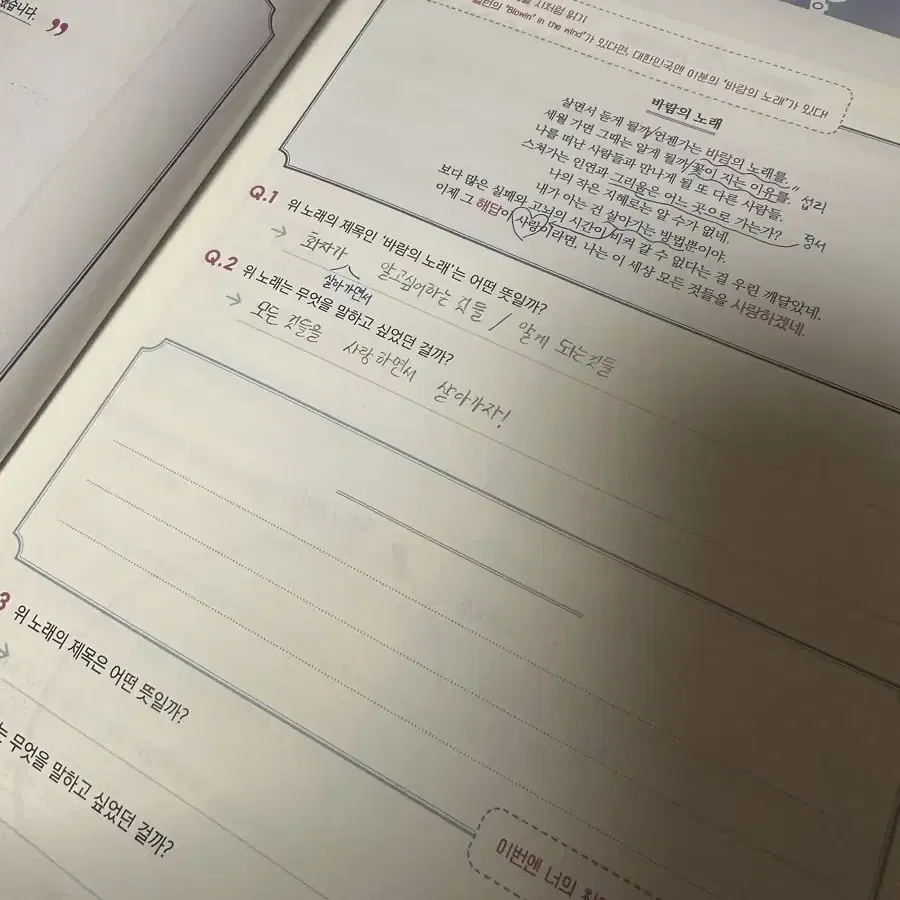 했습니다.
”
시처럼 읽기
"Blowin' in the wind"가 있다면, 대한민국엔 이분의 '바람의 노래'가 있다!
바람의 노래
살면서 듣게 될까 언젠가는 바람의 노래를.
세월 가면 그때는 알게 될까 꽃이 지는 이유를. 섭리
나를 떠난 사람들과 만나게 될 또 다른 사람들.
스쳐가는 인연과 그리움은 어느 곳으로 가는가? 정서
나의 작은 지혜로는 알 수가 없네.
내가 아는 건 살아가는 방법뿐이야.
보다 많은 실패와 고뇌의 시간이 비켜 갈 수 없다는 걸 우린 깨달았네.
이제 그 해답이 사랑이라면, 나는 이 세상 모든 것들을 사랑하겠네.
Q.1 위 노래의 제목인 '바람의 노래'는 어떤 뜻일까?
→ 화자가 살아가면서 알고싶어하는 것들 / 알게 되는 것들
Q.2 위 노래는 무엇을 말하고 싶었던 걸까?
→ 모든 것들을 사랑하면서 살아가자!
3 위 노래의 제목은 어떤 뜻일까?
→
는 무엇을 말하고 싶었던 걸까?
이번엔 너의